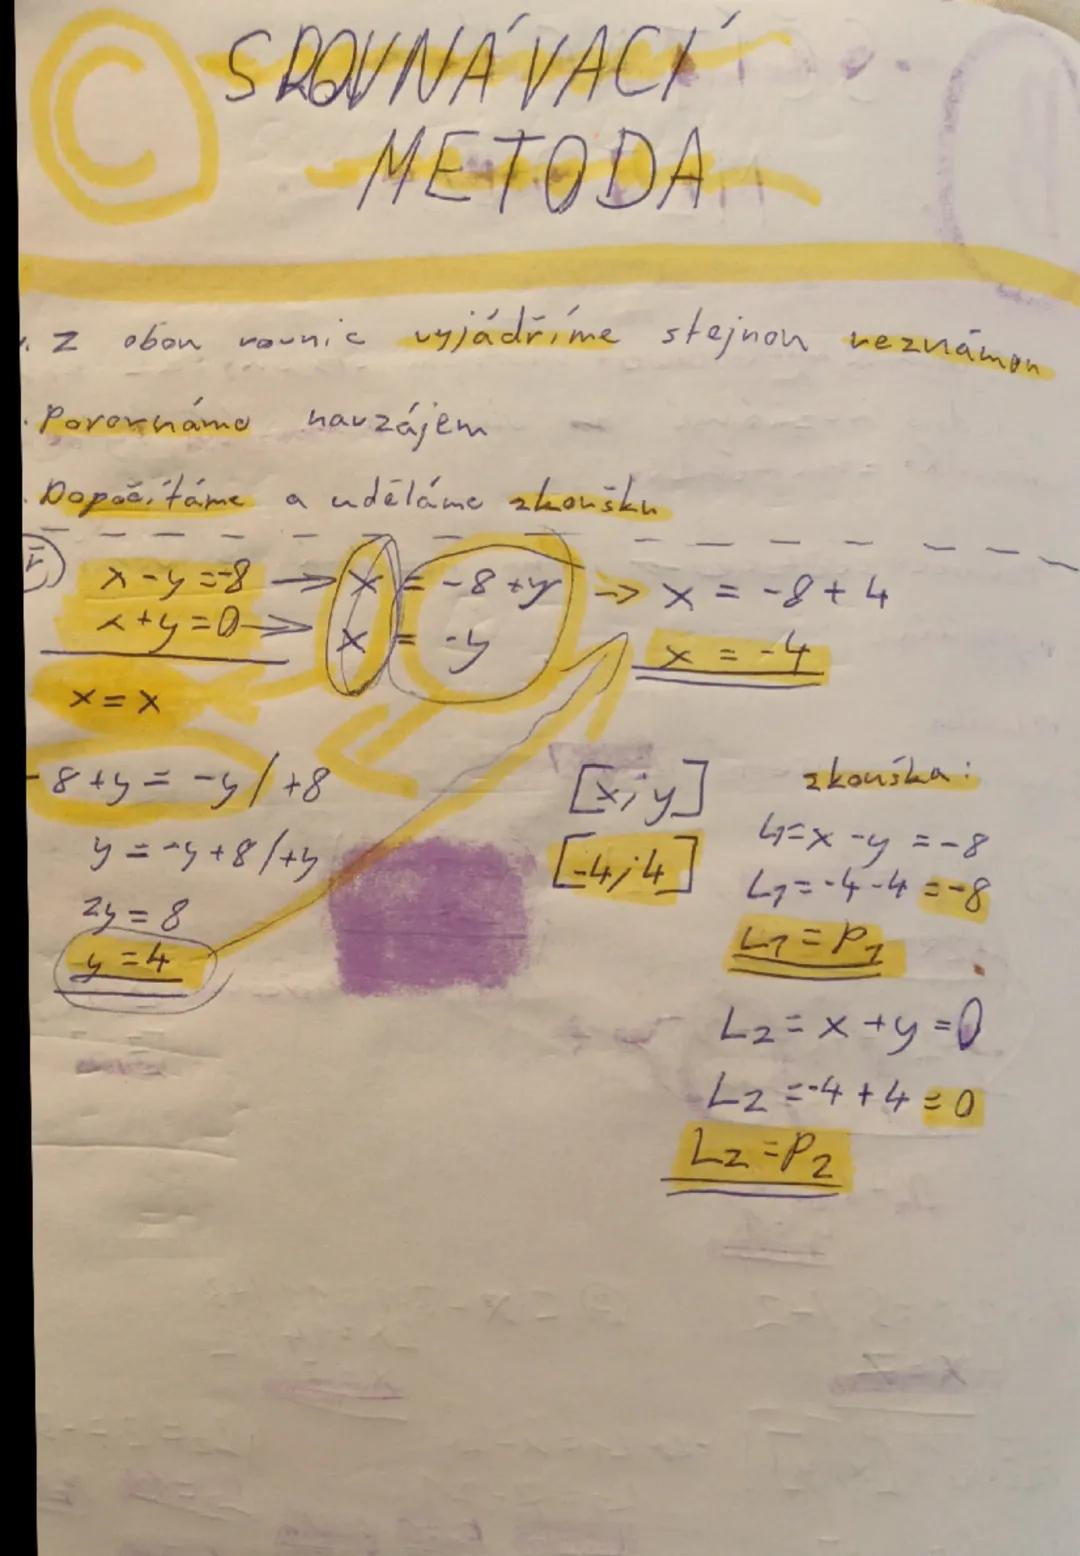 C
SROVNÁVACÍ
METODA
z obou rovnic vyjádříme stejnou neznámou
Porovnáme navzájem
Dopočítáme a uděláme zkoušku
x - y = -8 → x = -8 + y → x = -8 + 4
x + y = 0 → x = -y
x = -4
x = x
-8 + y = -y / +8
y = -y + 8 / +y
2y = 8
y = 4
[x; y]
[-4; 4]
zkouška:
L1 = x - y = -8
L1 = -4 - 4 = -8
L1 = P1
L2 = x + y = 0
L2 = -4 + 4 = 0
L2 = P2